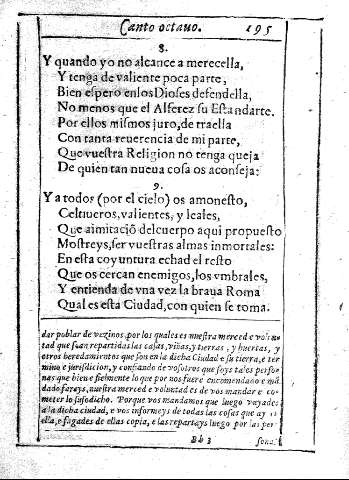 Canto octauo. 195
8.
Y quando yo no alcance a merecella,
Y tenga de valiente poca parte,
Bien espero en los Dioses defendella,
No menos que el Alferez su Estandarte.
Por ellos mismos juro, de traella
Con tanta reuerencia de mi parte,
Que vuestra Religion no tenga queja
De quien tan nueua cosa os aconseja:
9.
Y a todos (por el cielo) os amonesto,
Celtiueros, valientes, y leales,
Que aimitaciõ del cuerpo aqui propuesto
Mostreys, ser vuestras almas inmortales:
En esta coyuntura echad el resto
Que os cercan enemigos, los vmbrales,
Y entienda de vna vez la braua Roma
Qual es esta Ciudad, con quien se toma.
dar poblar de vezinos, por los quales es nuestra merced e volun
tad que sean repartidas las casas, viñas, y tierras, y huertas, y
otros heredamientos que son en la dicha Ciudad e su tierra, e ter
mino e jurisdicion, y confiando de vosotros que soys tales perso
nas que bien e fielmente lo que por nos fuere encomendado e mã
dado farays, nuestra merced e voluntad es de vos mandar e co-
meter lo susodicho. Porque vos mandamos que luego vayades
a la dicha ciudad, e vos informeys de todas las cosas que ay en
ella, e fagades de ellas copia, e las repartays luego por las per-
Bb 3 sonas